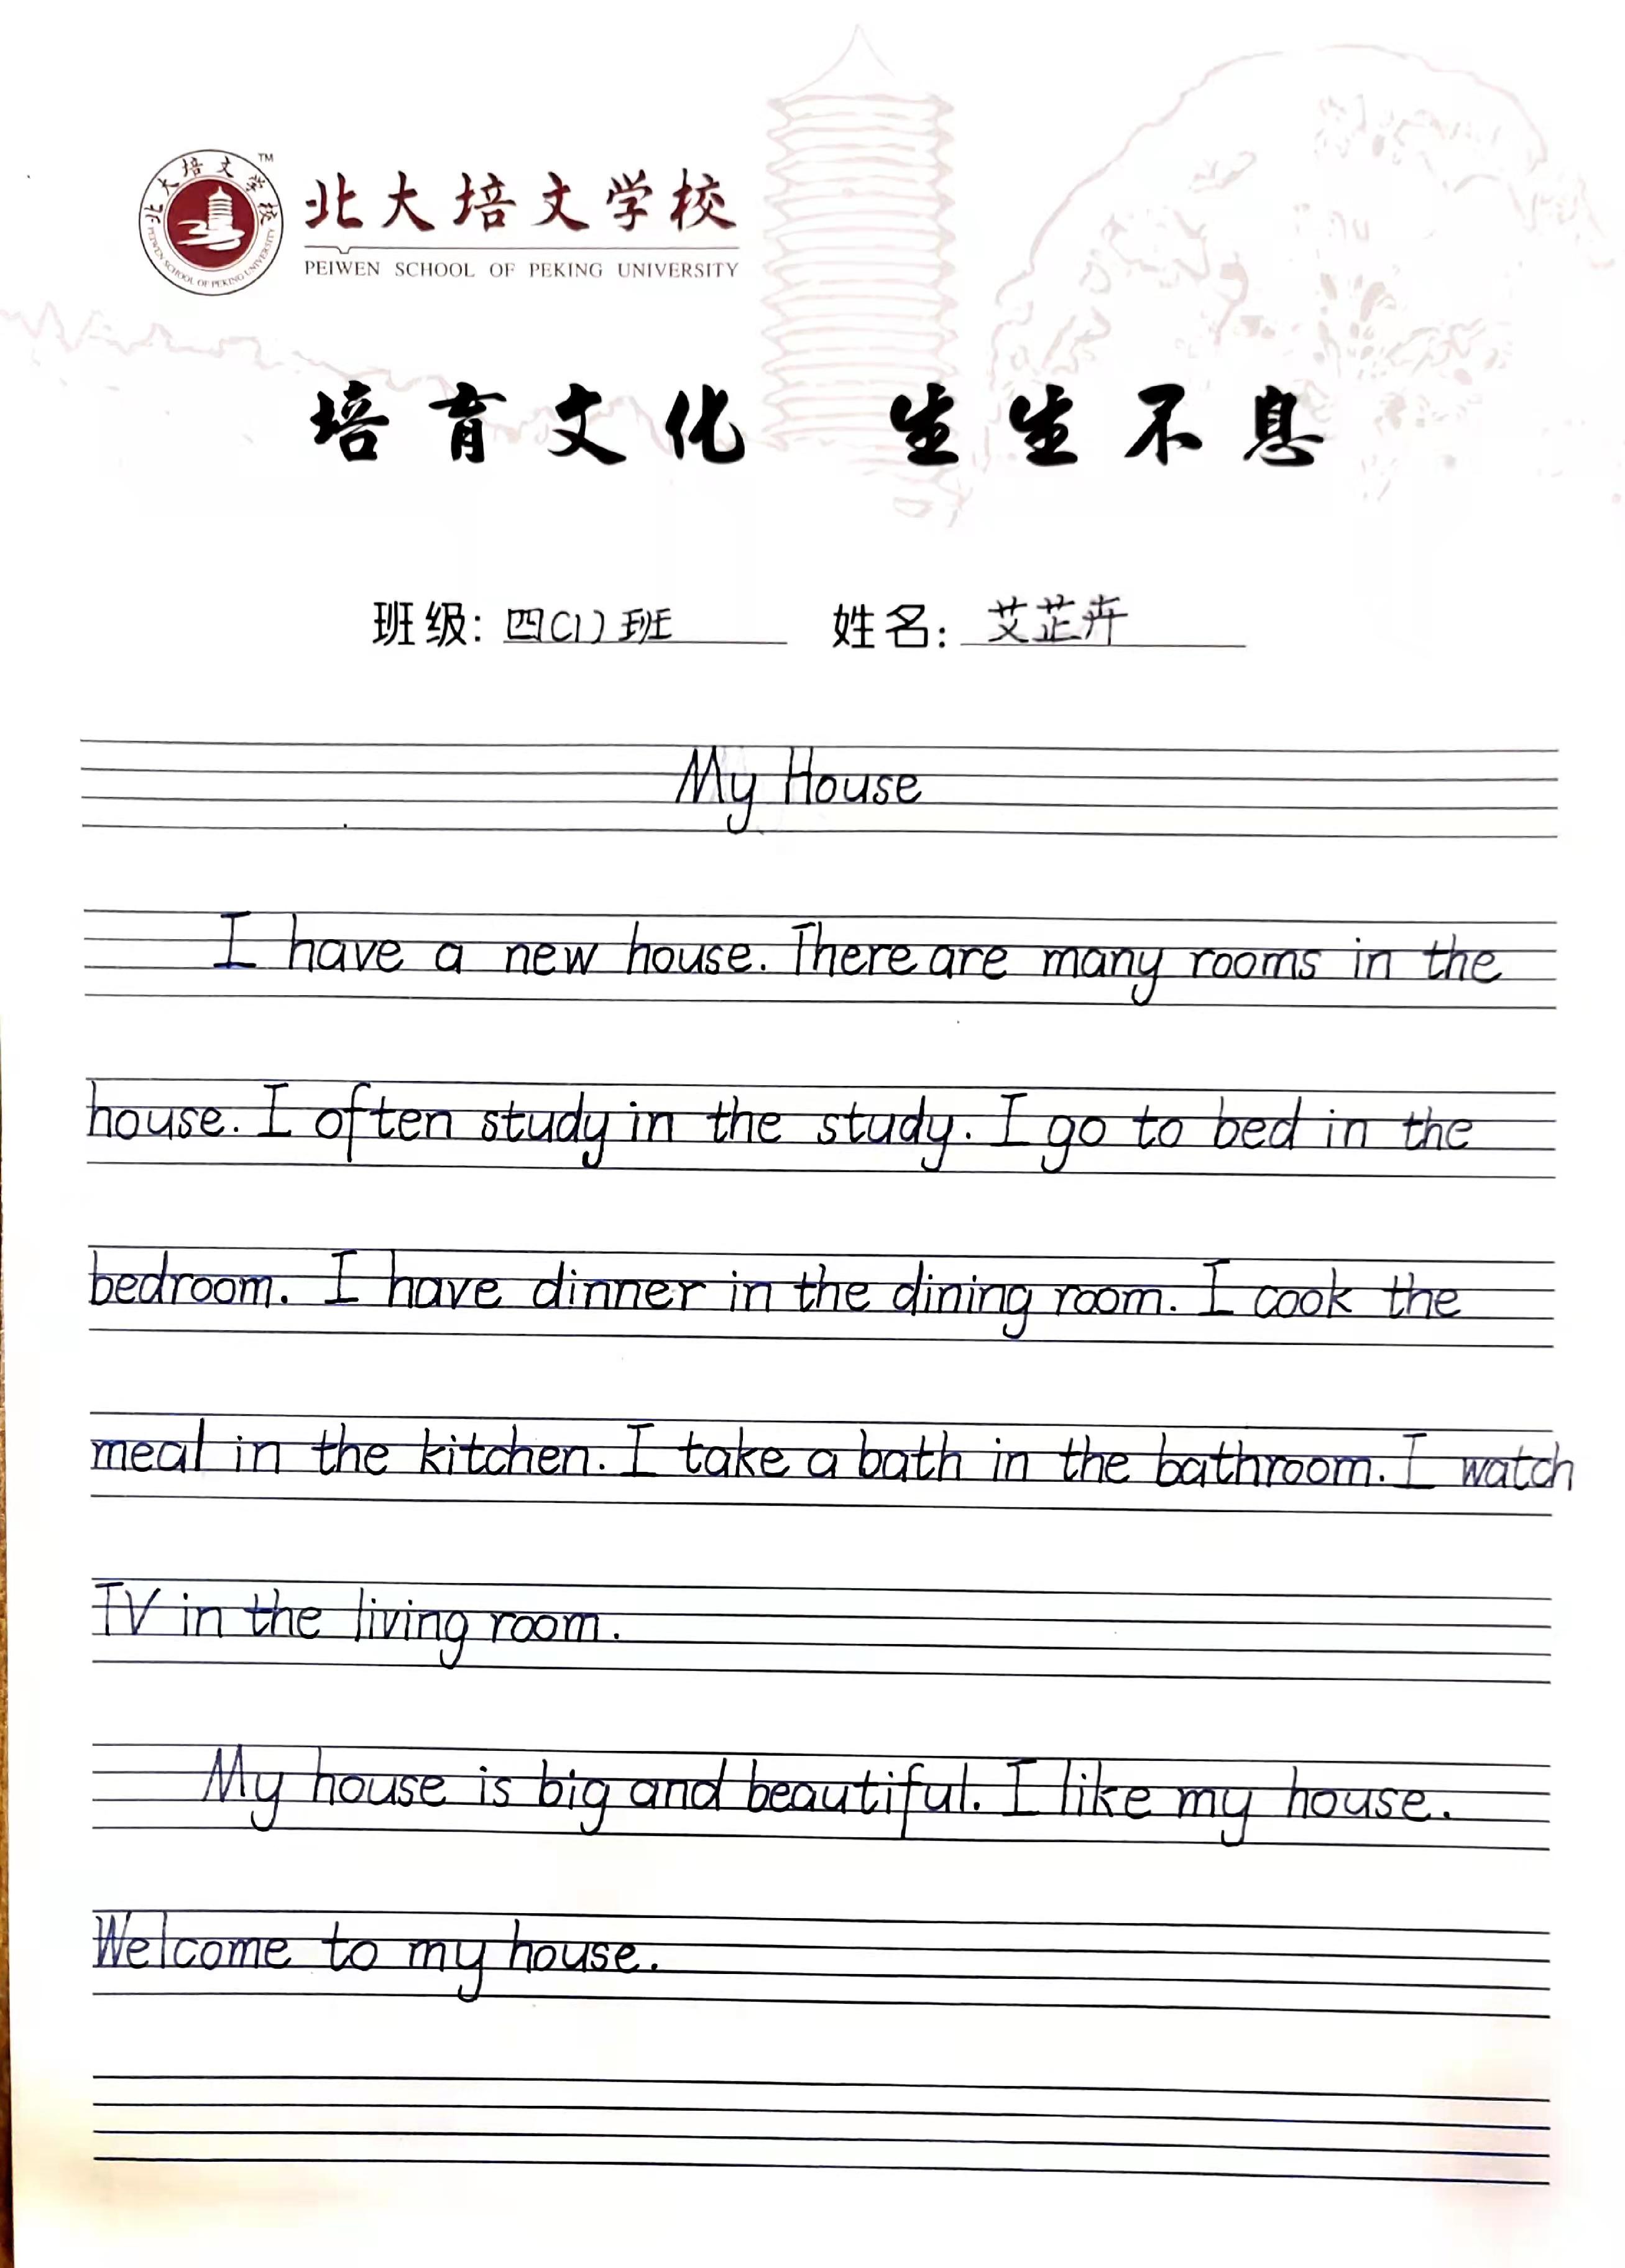 北大培文学校
TM
北大培文学校
PEIWEN SCHOOL OF PEKING UNIVERSITY
PEIWEN SCHOOL OF PEKING UNIVERSITY
培育文化 生生不息
班级: 四(1)班 姓名: 艾芷卉
My House
I have a new house. There are many rooms in the
house. I often study in the study. I go to bed in the
bedroom. I have dinner in the dining room. I cook the
meal in the kitchen. I take a bath in the bathroom. I watch
TV in the living room.
My house is big and beautiful. I like my house.
Welcome to my house.